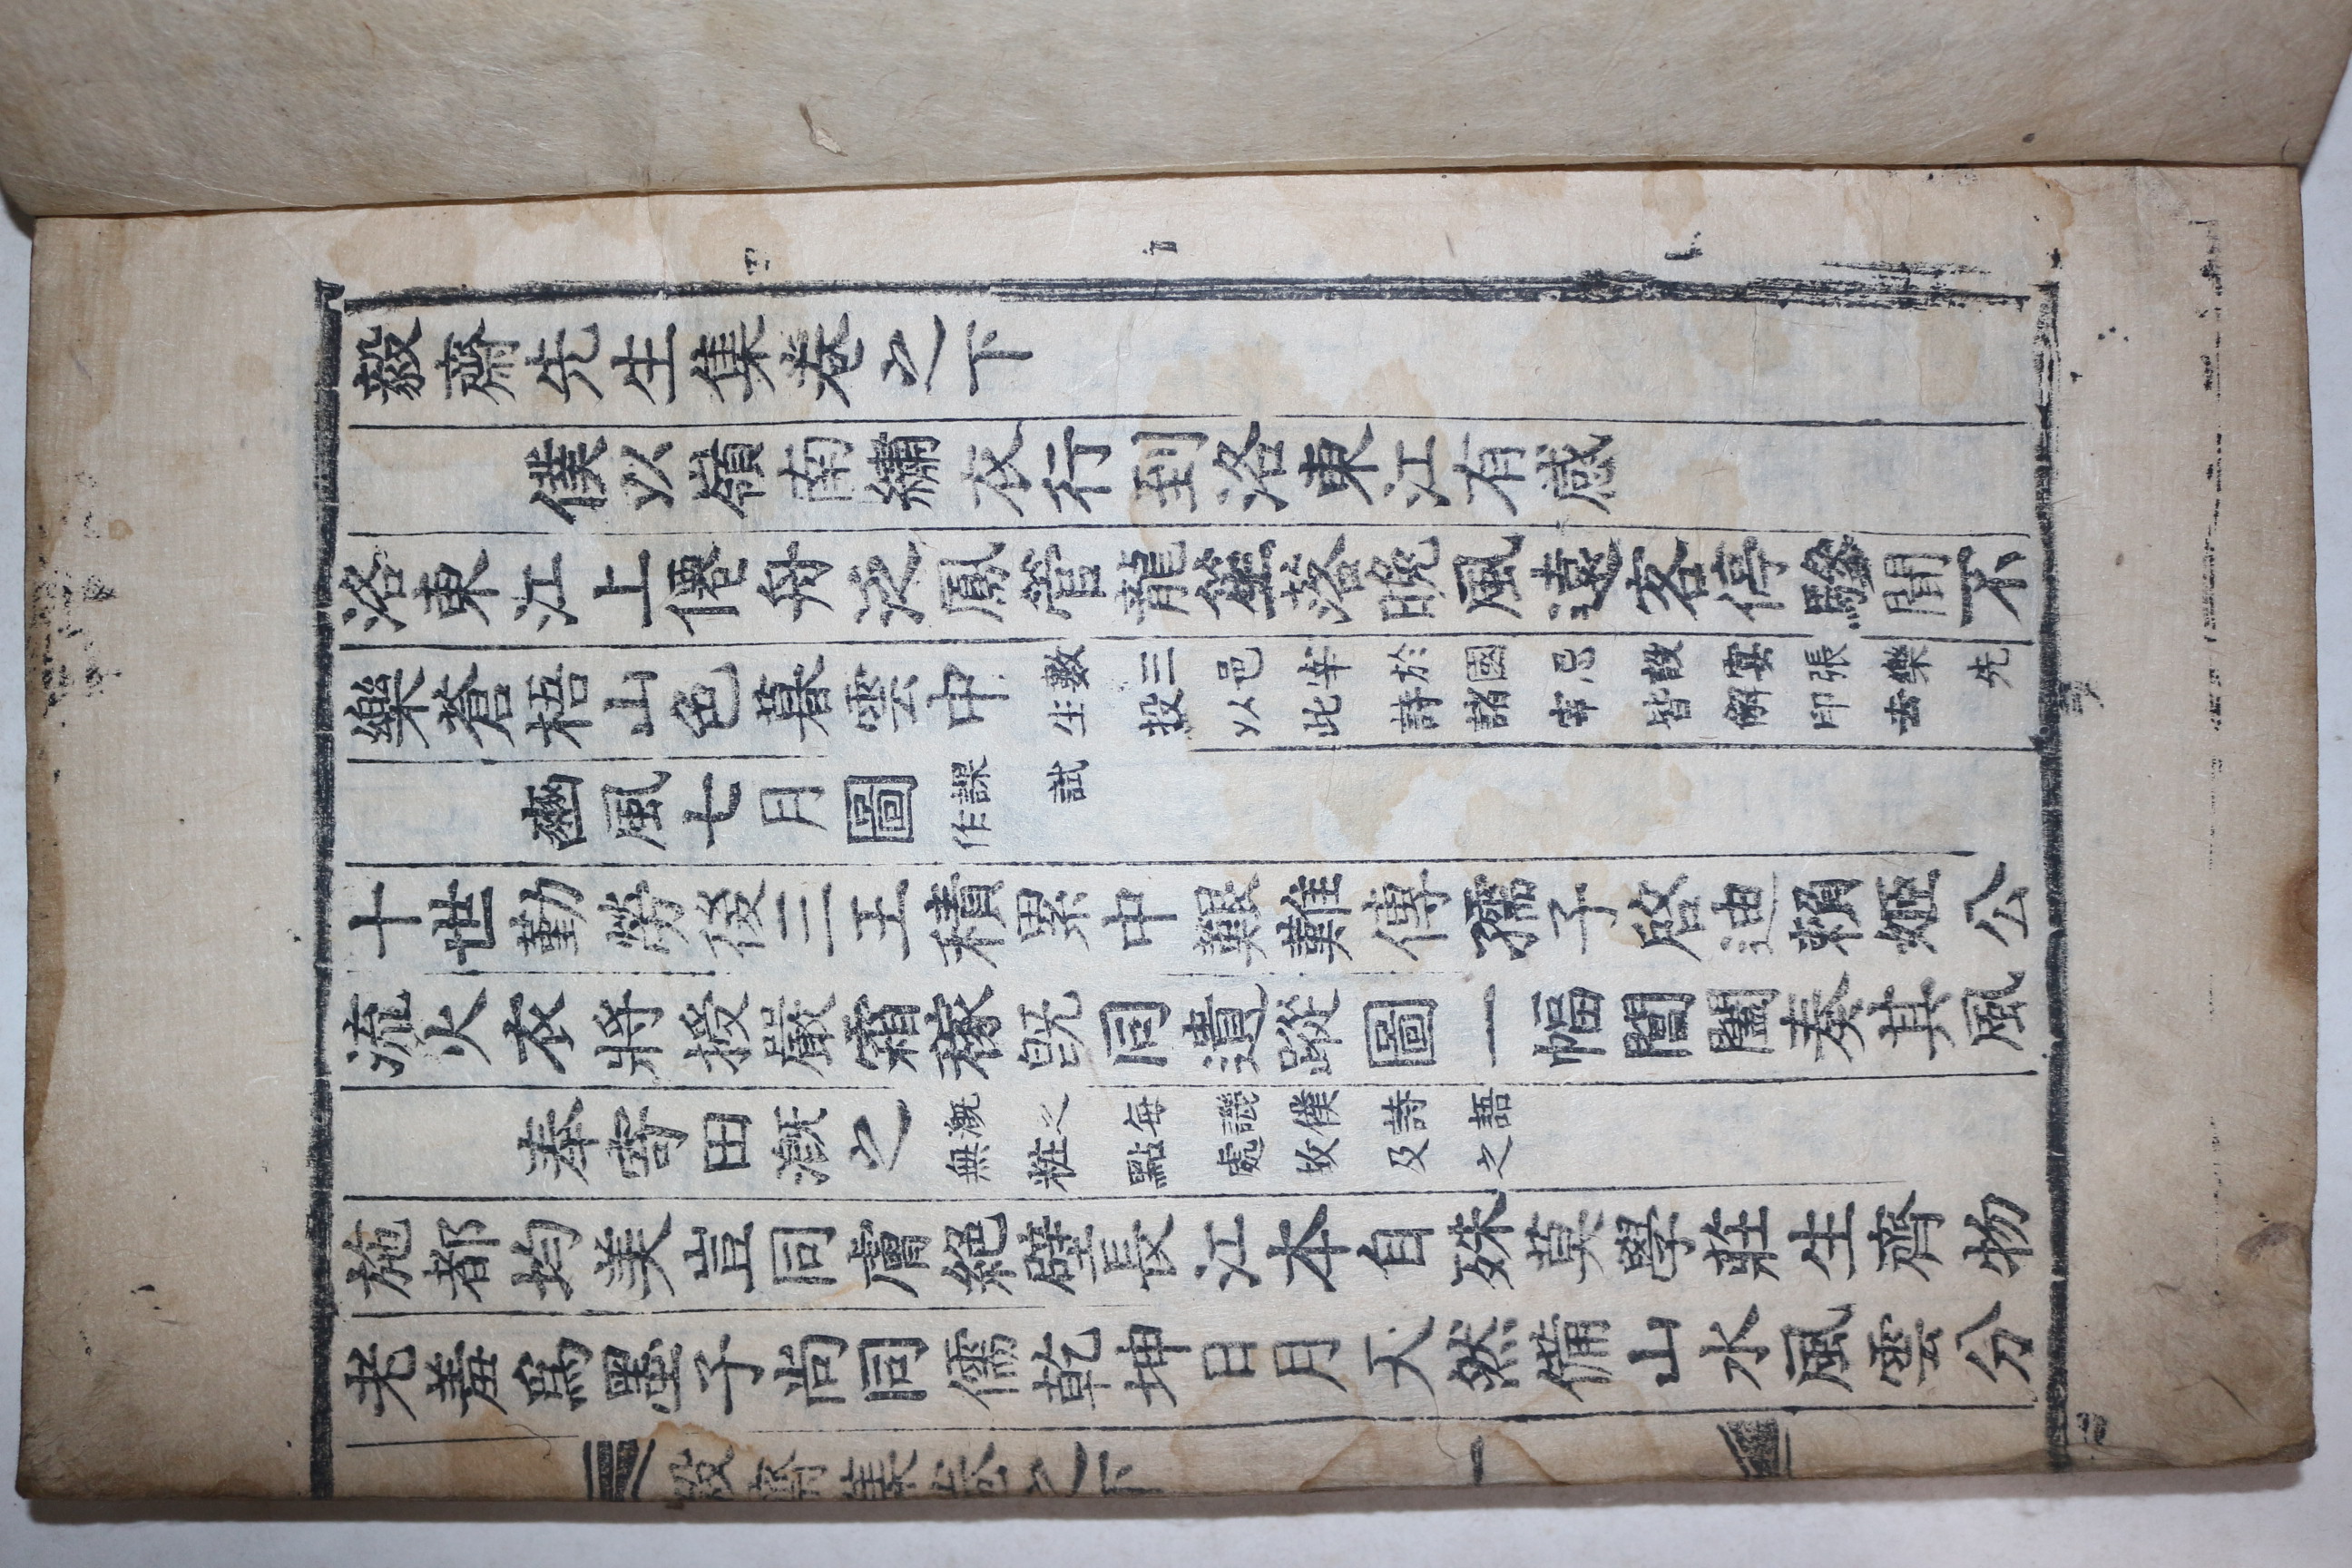 毅齋先生集卷之下
僕以嶺南繡衣行到洛東江有感
洛東江上僊舟泛鳳管龍篴落晚風遠客停驂聞不
樂蒼梧山色暮雲中 數三邑宰於國忌設宴張樂先
生投以此詩諸宰皆解印去
豳風七月圖 課試
作
十世勤勞後三王積累中艱難傳孺子啓迪賴姬公
流火衣將授嚴霜稼旣同遺蹤圖一幅閶闔奏其風
奉寄田漑之 漑之每譏僕詩語
無粧點處故及之
施都均美豈同膚絕壁長江本自殊莫學莊生齊物
老羞爲墨子尚同儒乾坤日月天然備山水風雲分
毅齋集卷之下 一